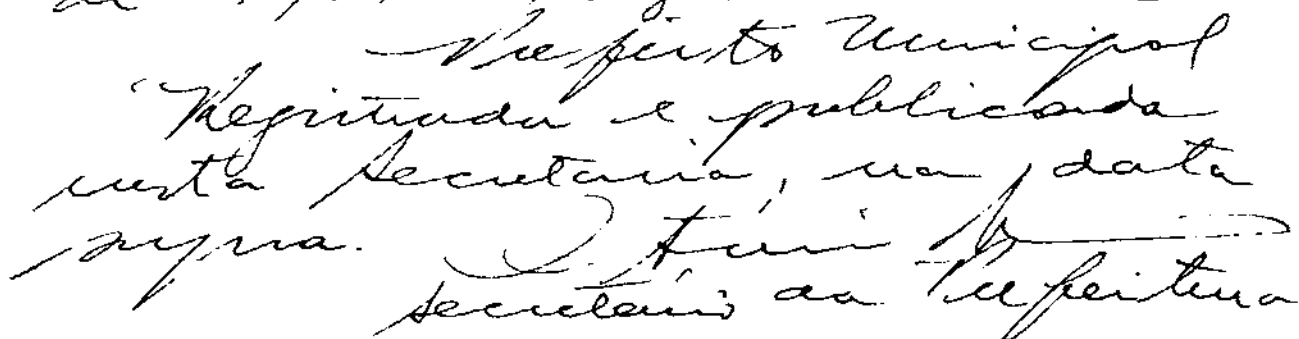 de
Prefeito Municipal
"Registrada e publicada
nesta secretaria, na data
supra.
secretário da Prefeitura